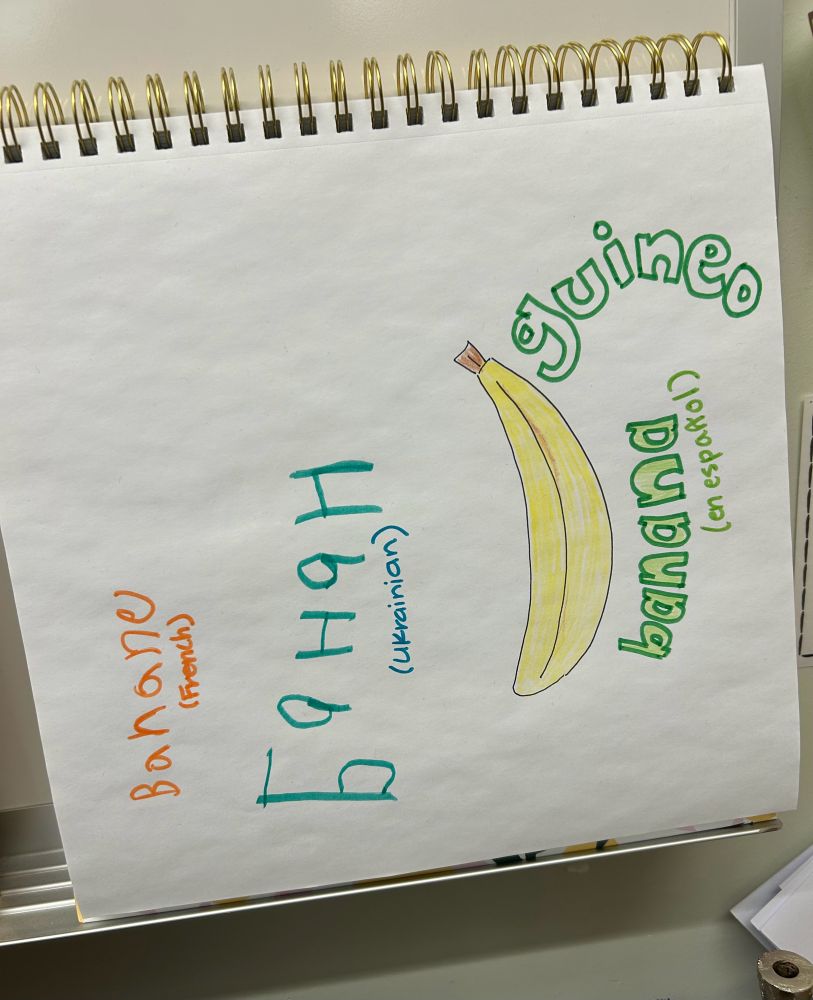 Banane
(French)
Банан
(Ukrainian)
guineo
banana
(en español)